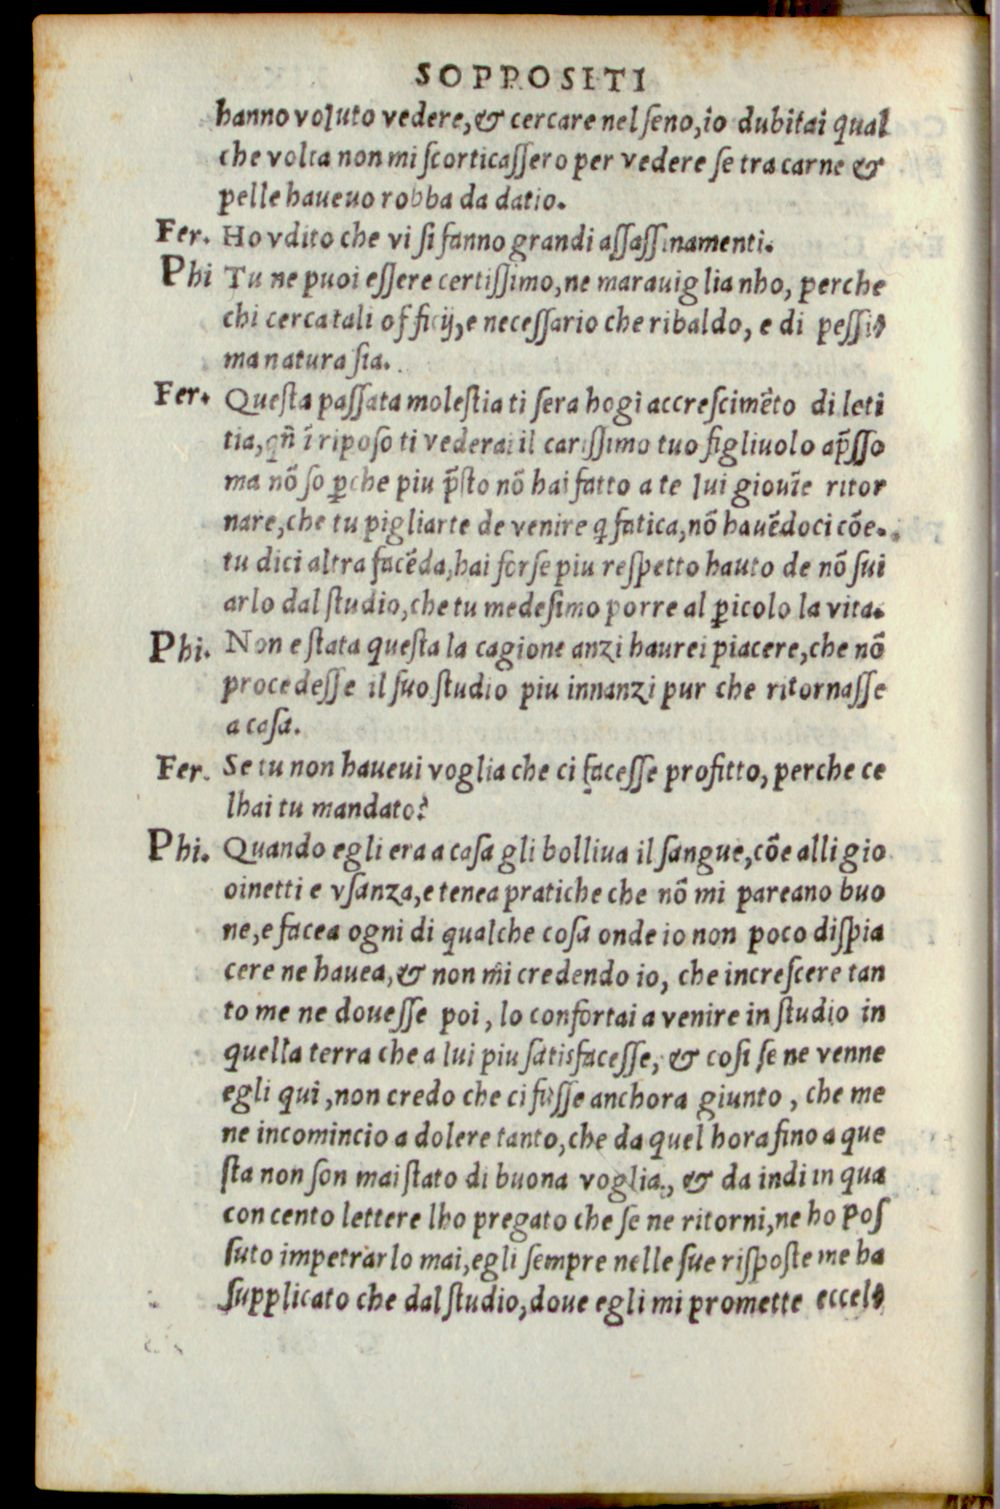 SOPPOSITI
hanno voluto vedere, & cercare nel seno, io dubitai qual
che volta non mi scorticassero per vedere se tra carne &
pelle haueuo robba da datio.
Fer. Ho vdito che vi si fanno grandi assassinamenti.
Phi Tu ne puoi essere certissimo, ne marauiglia nho, perche
chi cerca tali officij, e necessario che ribaldo, e di pessi-
ma natura sia.
Fer. Questa passata molestia ti sera hogi accrescimẽto di leti
tia, qñ ĩ riposo ti vederai il carissimo tuo figliuolo ap̃sso
ma nõ so ꝑche piu p̃sto nõ hai fatto a te lui giouĩe ritor
nare, che tu pigliarte de venire q̃ fatica, nõ hauẽdoci cõe.
tu dici altra facẽda, hai forse piu respetto hauto de nõ sui
arlo dal studio, che tu medesimo porre al ꝑicolo la vita.
Phi. Non e stata questa la cagione anzi haurei piacere, che nõ
procedesse il suo studio piu innanzi pur che ritornasse
a casa.
Fer. Se tu non haueui voglia che ci facesse profitto, perche ce
lhai tu mandato?
Phi. Quando egli era a casa gli bolliua il sangue, cõe alli gio
oinetti e vsanza, e tenea pratiche che nõ mi pareano buo
ne, e facea ogni di qualche cosa onde io non poco dispia
cere ne hauea, & non mi credendo io, che increscere tan
to me ne douesse poi, lo confortai a venire in studio in
quella terra che a lui piu satisfacesse, & cosi se ne venne
egli qui, non credo che ci fusse anchora giunto, che me
ne incomincio a dolere tanto, che da quel hora fino a que
sta non son mai stato di buona voglia, & da indi in qua
con cento lettere lho pregato che se ne ritorni, ne ho pos
suto impetrarlo mai, egli sempre nelle sue risposte me ha
supplicato che dal studio, doue egli mi promette eccel-